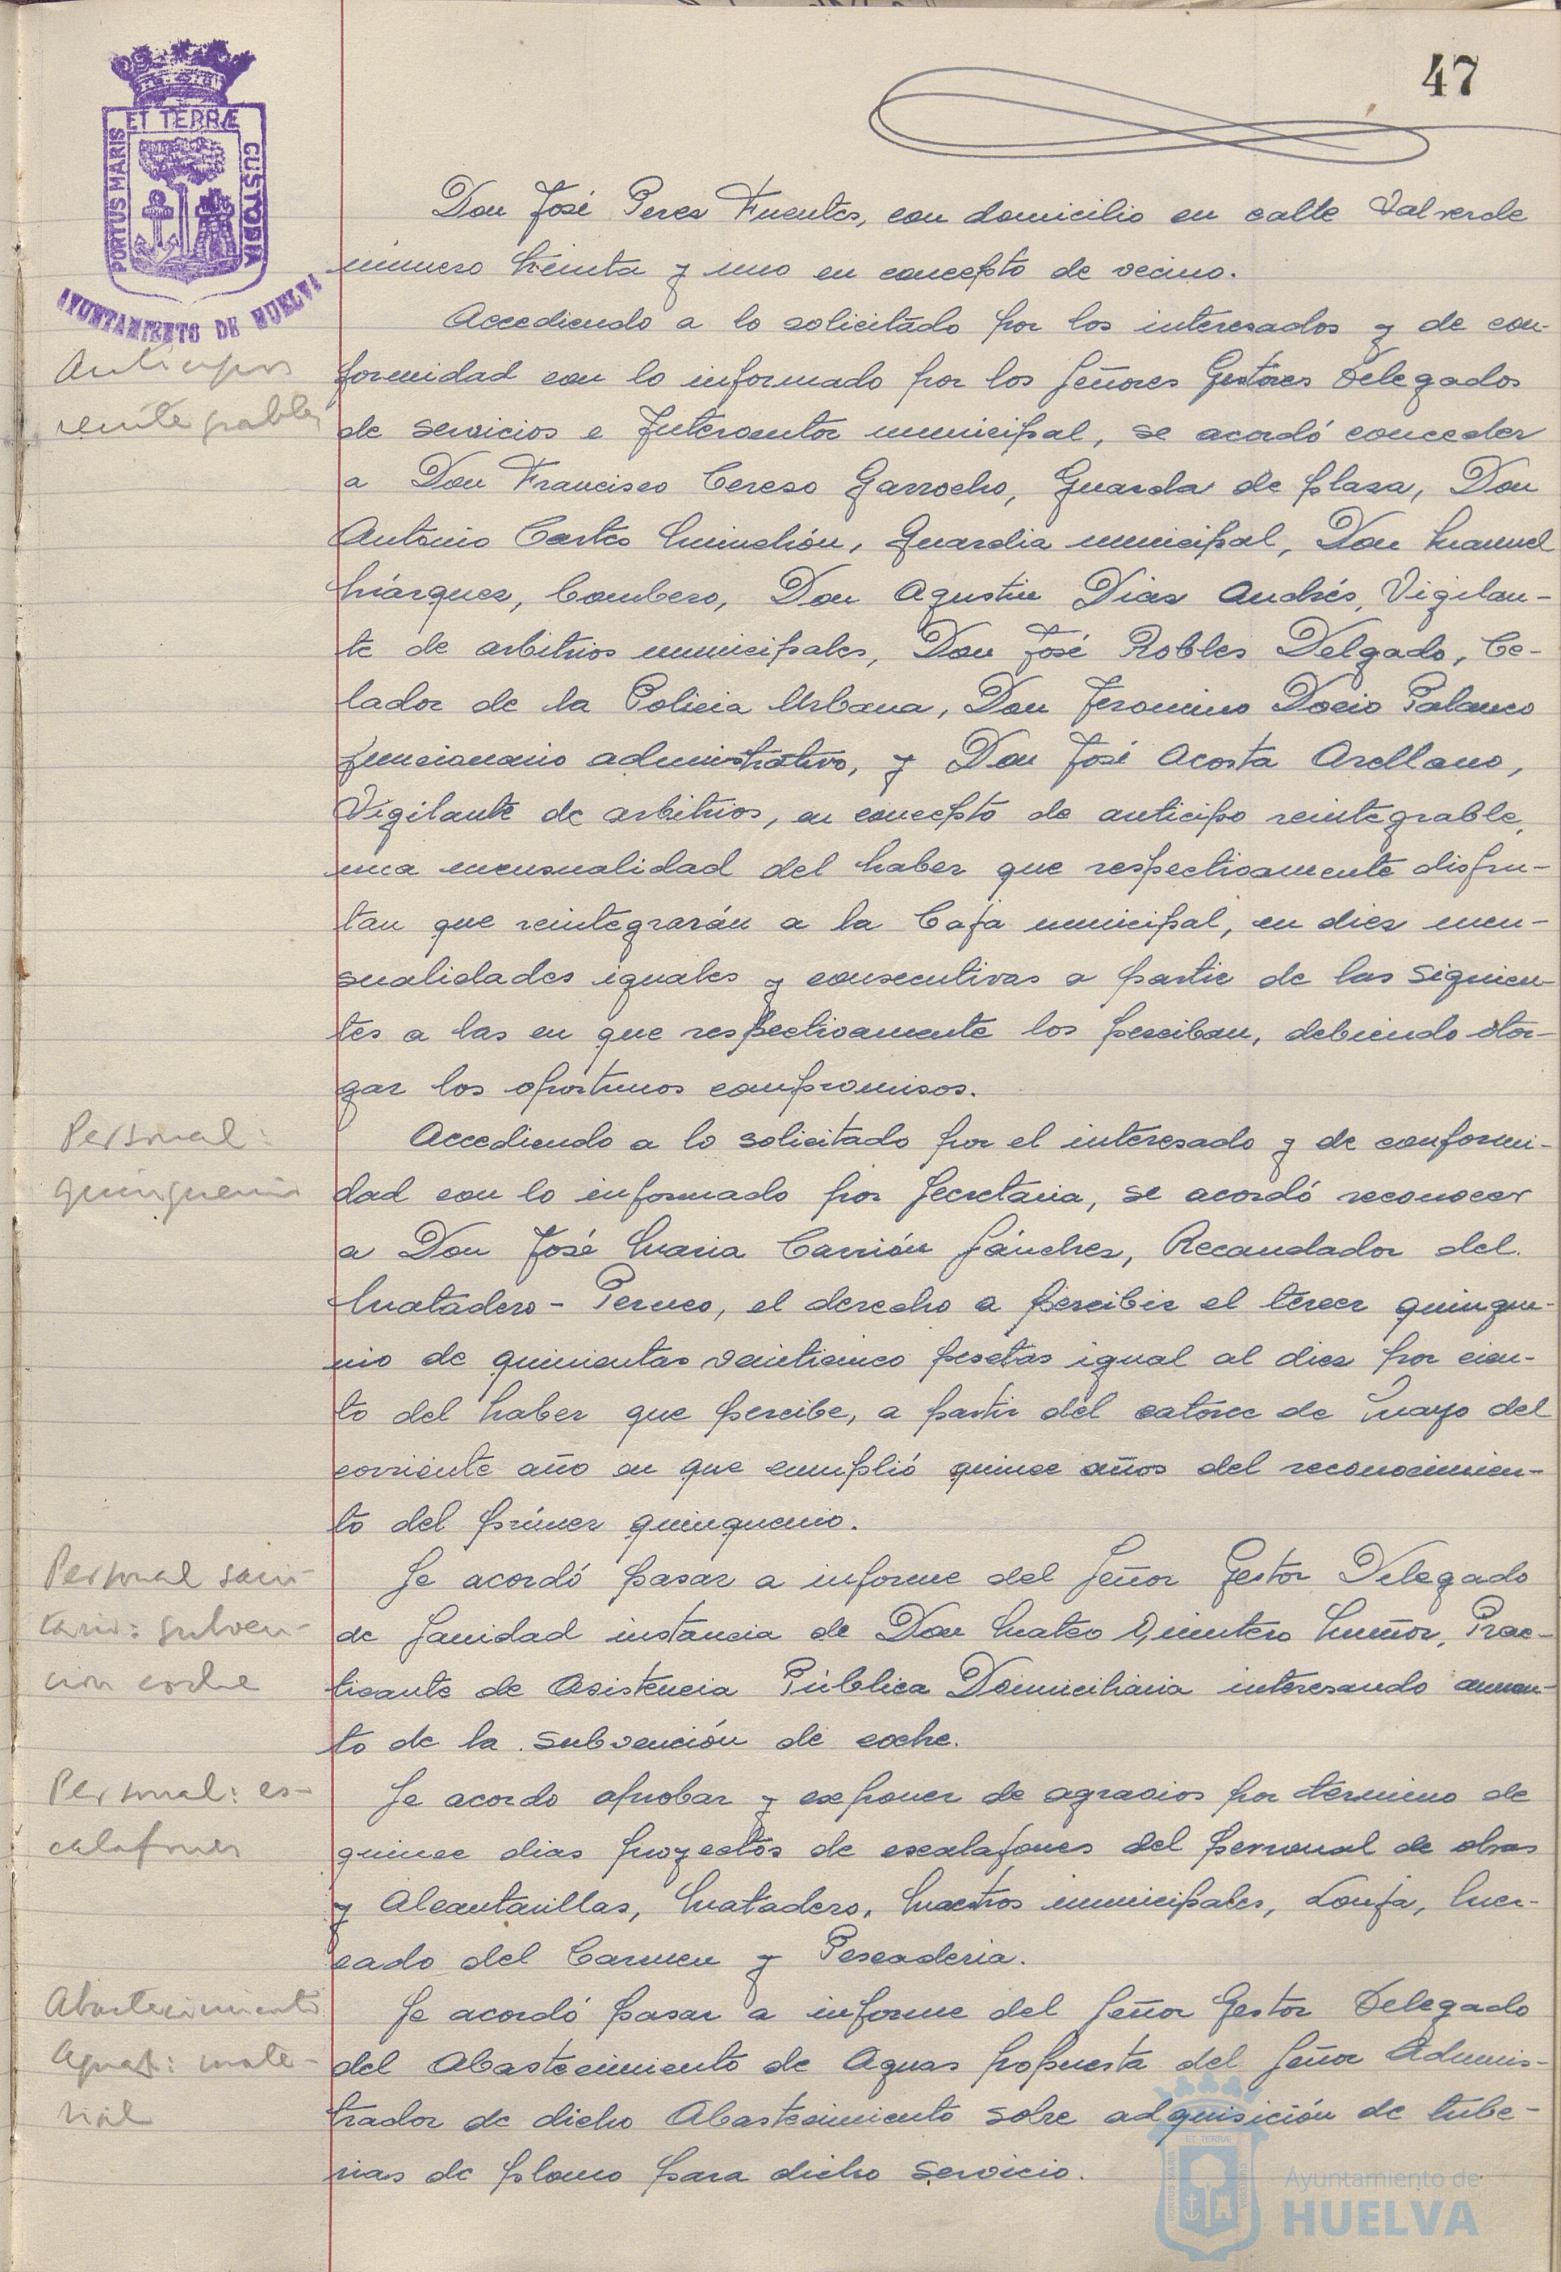 47
ET TERRÆ
PORTUS MARIS
CUSTODIA
AYUNTAMIENTO DE HUELVA
Don José Perez Fuentes, con domicilio en calle Valverde
número treinta y uno en concepto de vecino.
Anticipos
reintegrables
Accediendo a lo solicitado por los interesados y de con-
formidad con lo informado por los Señores Gestores Delegados
de servicios e Interventor municipal, se acordó conceder
a Don Francisco Cerezo Garrocho, Guarda de plaza, Don
Antonio Cortes Minchón, Guardia municipal, Don Manuel
Márquez, Bombero, Don Agustin Diaz Andrés, Vigilan-
te de arbitrios municipales, Don José Robles Delgado, Ce-
lador de la Policia Urbana, Don Jeronimo Docio Palanco
funcionario administrativo, y Don José Acosta Arellano,
Vigilante de arbitrios, en concepto de anticipo reintegrable,
una mensualidad del haber que respectivamente disfru-
tan que reintegrarán a la Caja municipal, en diez men-
sualidades iguales y consecutivas a partir de las siguien-
tes a las en que respectivamente los perciban, debiendo otor-
gar los oportunos compromisos.
Personal:
quinquenio
Accediendo a lo solicitado por el interesado y de conformi-
dad con lo informado por Secretaria, se acordó reconocer
a Don José Maria Carrión Sánchez, Recaudador del
Matadero - Perneo, el derecho a percibir el tercer quinque-
nio de quinientas veinticinco pesetas igual al diez por cien-
to del haber que percibe, a partir del catorce de Mayo del
corriente año en que cumplió quince años del reconocimien-
to del primer quinquenio.
Personal sani-
tario: subven-
cion coche
Se acordó pasar a informe del Señor Gestor Delegado
de Sanidad instancia de Don Mateo Quintero Muñoz, Prac-
ticante de Asistencia Pública Domiciliaria interesando aumen-
to de la subvención de coche.
Personal: es-
calafones
Se acordo aprobar y exponer de agravios por termino de
quince dias proyectos de escalafones del personal de obras
y Alcantarillas, Matadero, Maestros municipales, Lonja, Mer-
cado del Carmen y Pescaderia.
Abastecimiento
Aguas: mate-
rial
Se acordó pasar a informe del Señor Gestor Delegado
del Abastecimiento de Aguas propuesta del Señor Adminis-
trador de dicho Abastecimiento sobre adquisición de tube-
rias de plomo para dicho servicio.
Ayuntamiento de
HUELVA